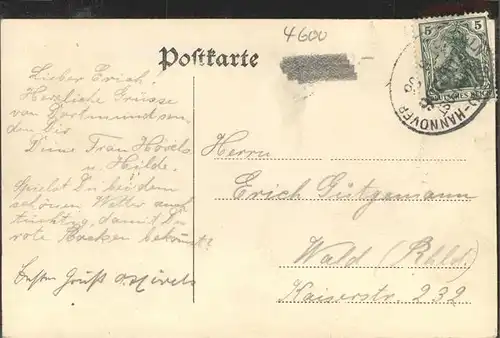 4600
Postkarte
5
DEUTSCHES REICH
HANNOVER
Lieber Erich.
Herzliche Grüsse
von Dortmund sen-
den Dir
Deine Frau Hövels
u. Hilde.
Spielst Du bei dem
schönen Wetter auch
tüchtig, damit Du
rote Backen bekomst?
besten Gruß
Herrn
Erich Gütgemann
Wald (Rhld.)
Kaiserstr. 232